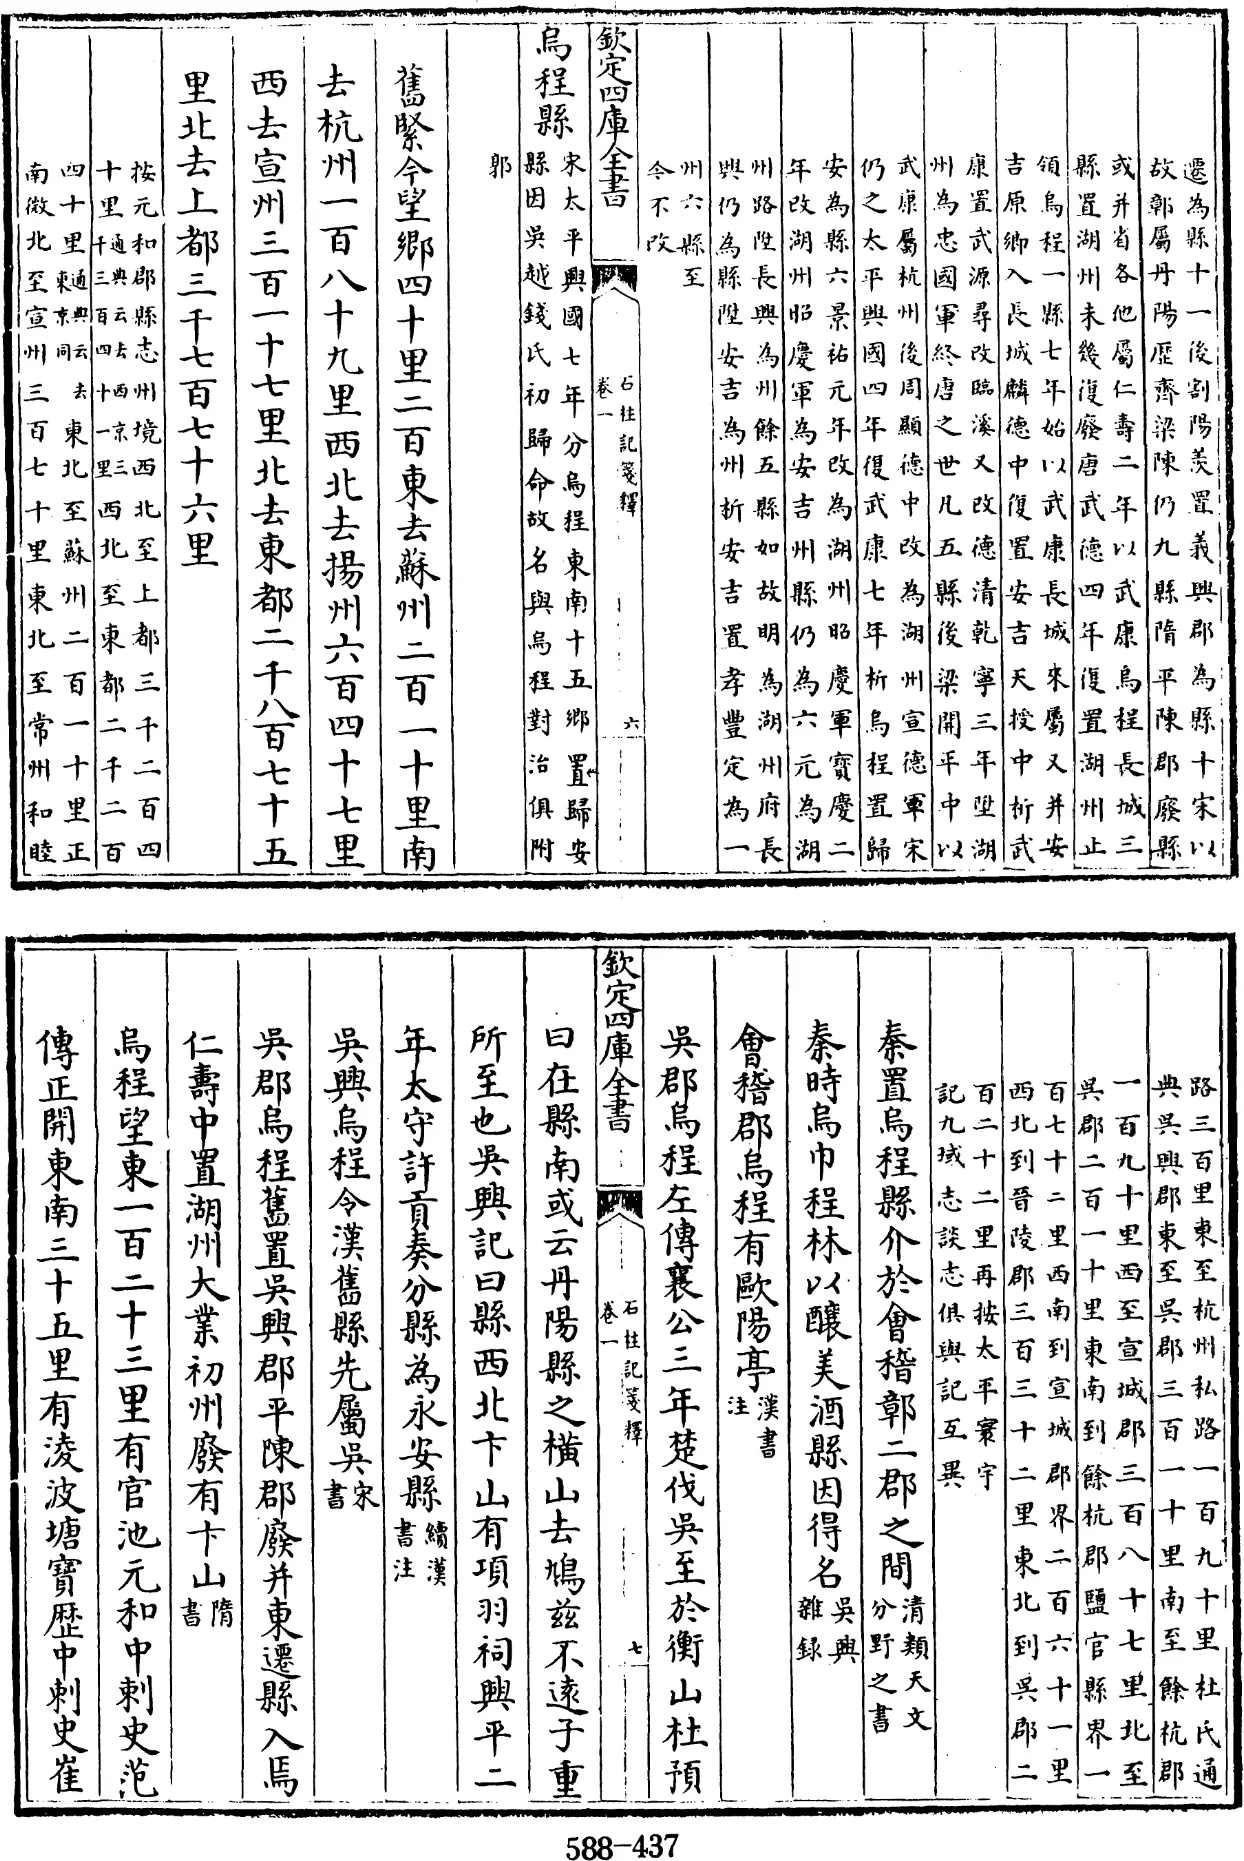 遷為縣十一後割陽羨置義興郡為縣十宋以
故鄣屬丹陽歷齊梁陳仍九縣隋平陳郡廢縣
或并省各他屬仁壽二年以武康烏程長城三
縣置湖州未幾復廢唐武德四年復置湖州止
領烏程一縣七年始以武康長城來屬又并安
吉原鄉入長城麟德中復置安吉天授中析武
康置武源尋改臨溪又改德清乾寧三年陞湖
州為忠國軍終唐之世凡五縣後梁開平中以
武康屬杭州後周顯德中改為湖州宣德軍宋
仍之太平興國四年復武康七年析烏程置歸
安為縣六景祐元年改為湖州昭慶軍寶慶二
年改湖州昭慶軍為安吉州縣仍為六元為湖
州路陞長興為州餘五縣如故明為湖州府長
興仍為縣陞安吉為州析安吉置孝豐定為一
州六縣至
今不改
欽定四庫全書
石柱記箋釋
卷一
六
烏程縣
宋太平興國七年分烏程東南十五鄉置歸安
縣因吳越錢氏初歸命故名與烏程對治俱附
郭
舊緊今望鄉四十里二百東去蘇州二百一十里南
去杭州一百八十九里西北去揚州六百四十七里
西去宣州三百一十七里北去東都二千八百七十五
里北去上都三千七百七十六里
按元和郡縣志州境西北至上都三千二百四
十里通典云去西京三千三百四十一里西北至東都二千二百
四十里通典云去東京同東北至蘇州二百一十里正
南微北至宣州三百七十里東北至常州和睦
路三百里東至杭州私路一百九十里杜氏通
典吳興郡東至吳郡三百一十里南至餘杭郡
一百九十里西至宣城郡三百八十七里北至
吳郡二百一十里東南到餘杭郡鹽官縣界一
百七十二里西南到宣城郡界二百六十一里
西北到晉陵郡三百三十二里東北到吳郡二
百二十二里再按太平寰宇
記九域志談志俱與記互異
秦置烏程縣介於會稽鄣二郡之間清類天文分野之書
秦時烏巾程林以釀美酒縣因得名吳興雜録
會稽郡烏程有歐陽亭漢書注
吳郡烏程左傳襄公三年楚伐吳至於衡山杜預
欽定四庫全書
石柱記箋釋
卷一
七
曰在縣南或云丹陽縣之橫山去鳩茲不遠子重
所至也吳興記曰縣西北卞山有項羽祠興平二
年太守許貢奏分縣為永安縣續漢書注
吳興烏程令漢舊縣先屬吳宋書
吳郡烏程舊置吳興郡平陳郡廢并東遷縣入焉
仁壽中置湖州大業初州廢有卞山隋書
烏程望東一百二十三里有官池元和中刺史范
傳正開東南三十五里有淩波塘寶歷中刺史崔
588-437